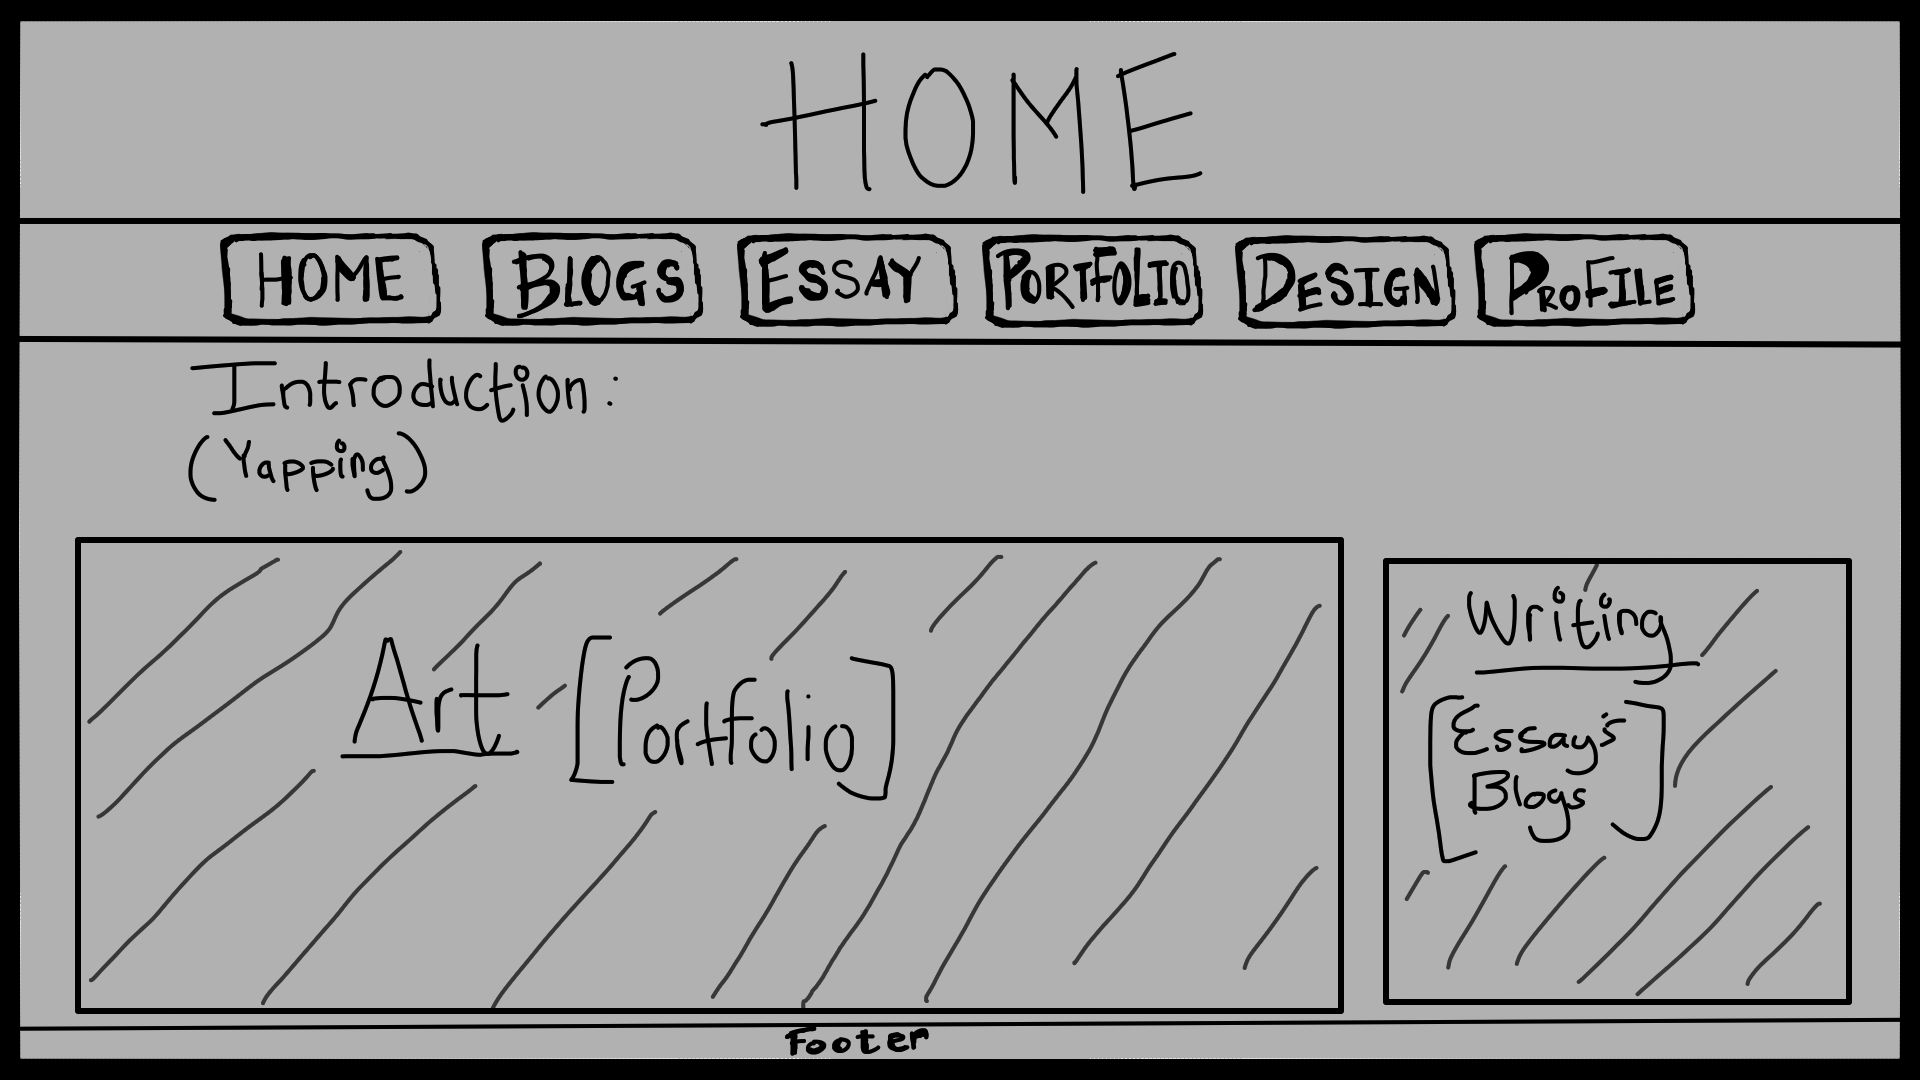 HOME
HOME BLOGS ESSAY PORTFOLIO DESIGN PROFILE
Introduction:
(Yapping)
Art [Portfolio]
Writing
[Essay's
Blogs]
Footer